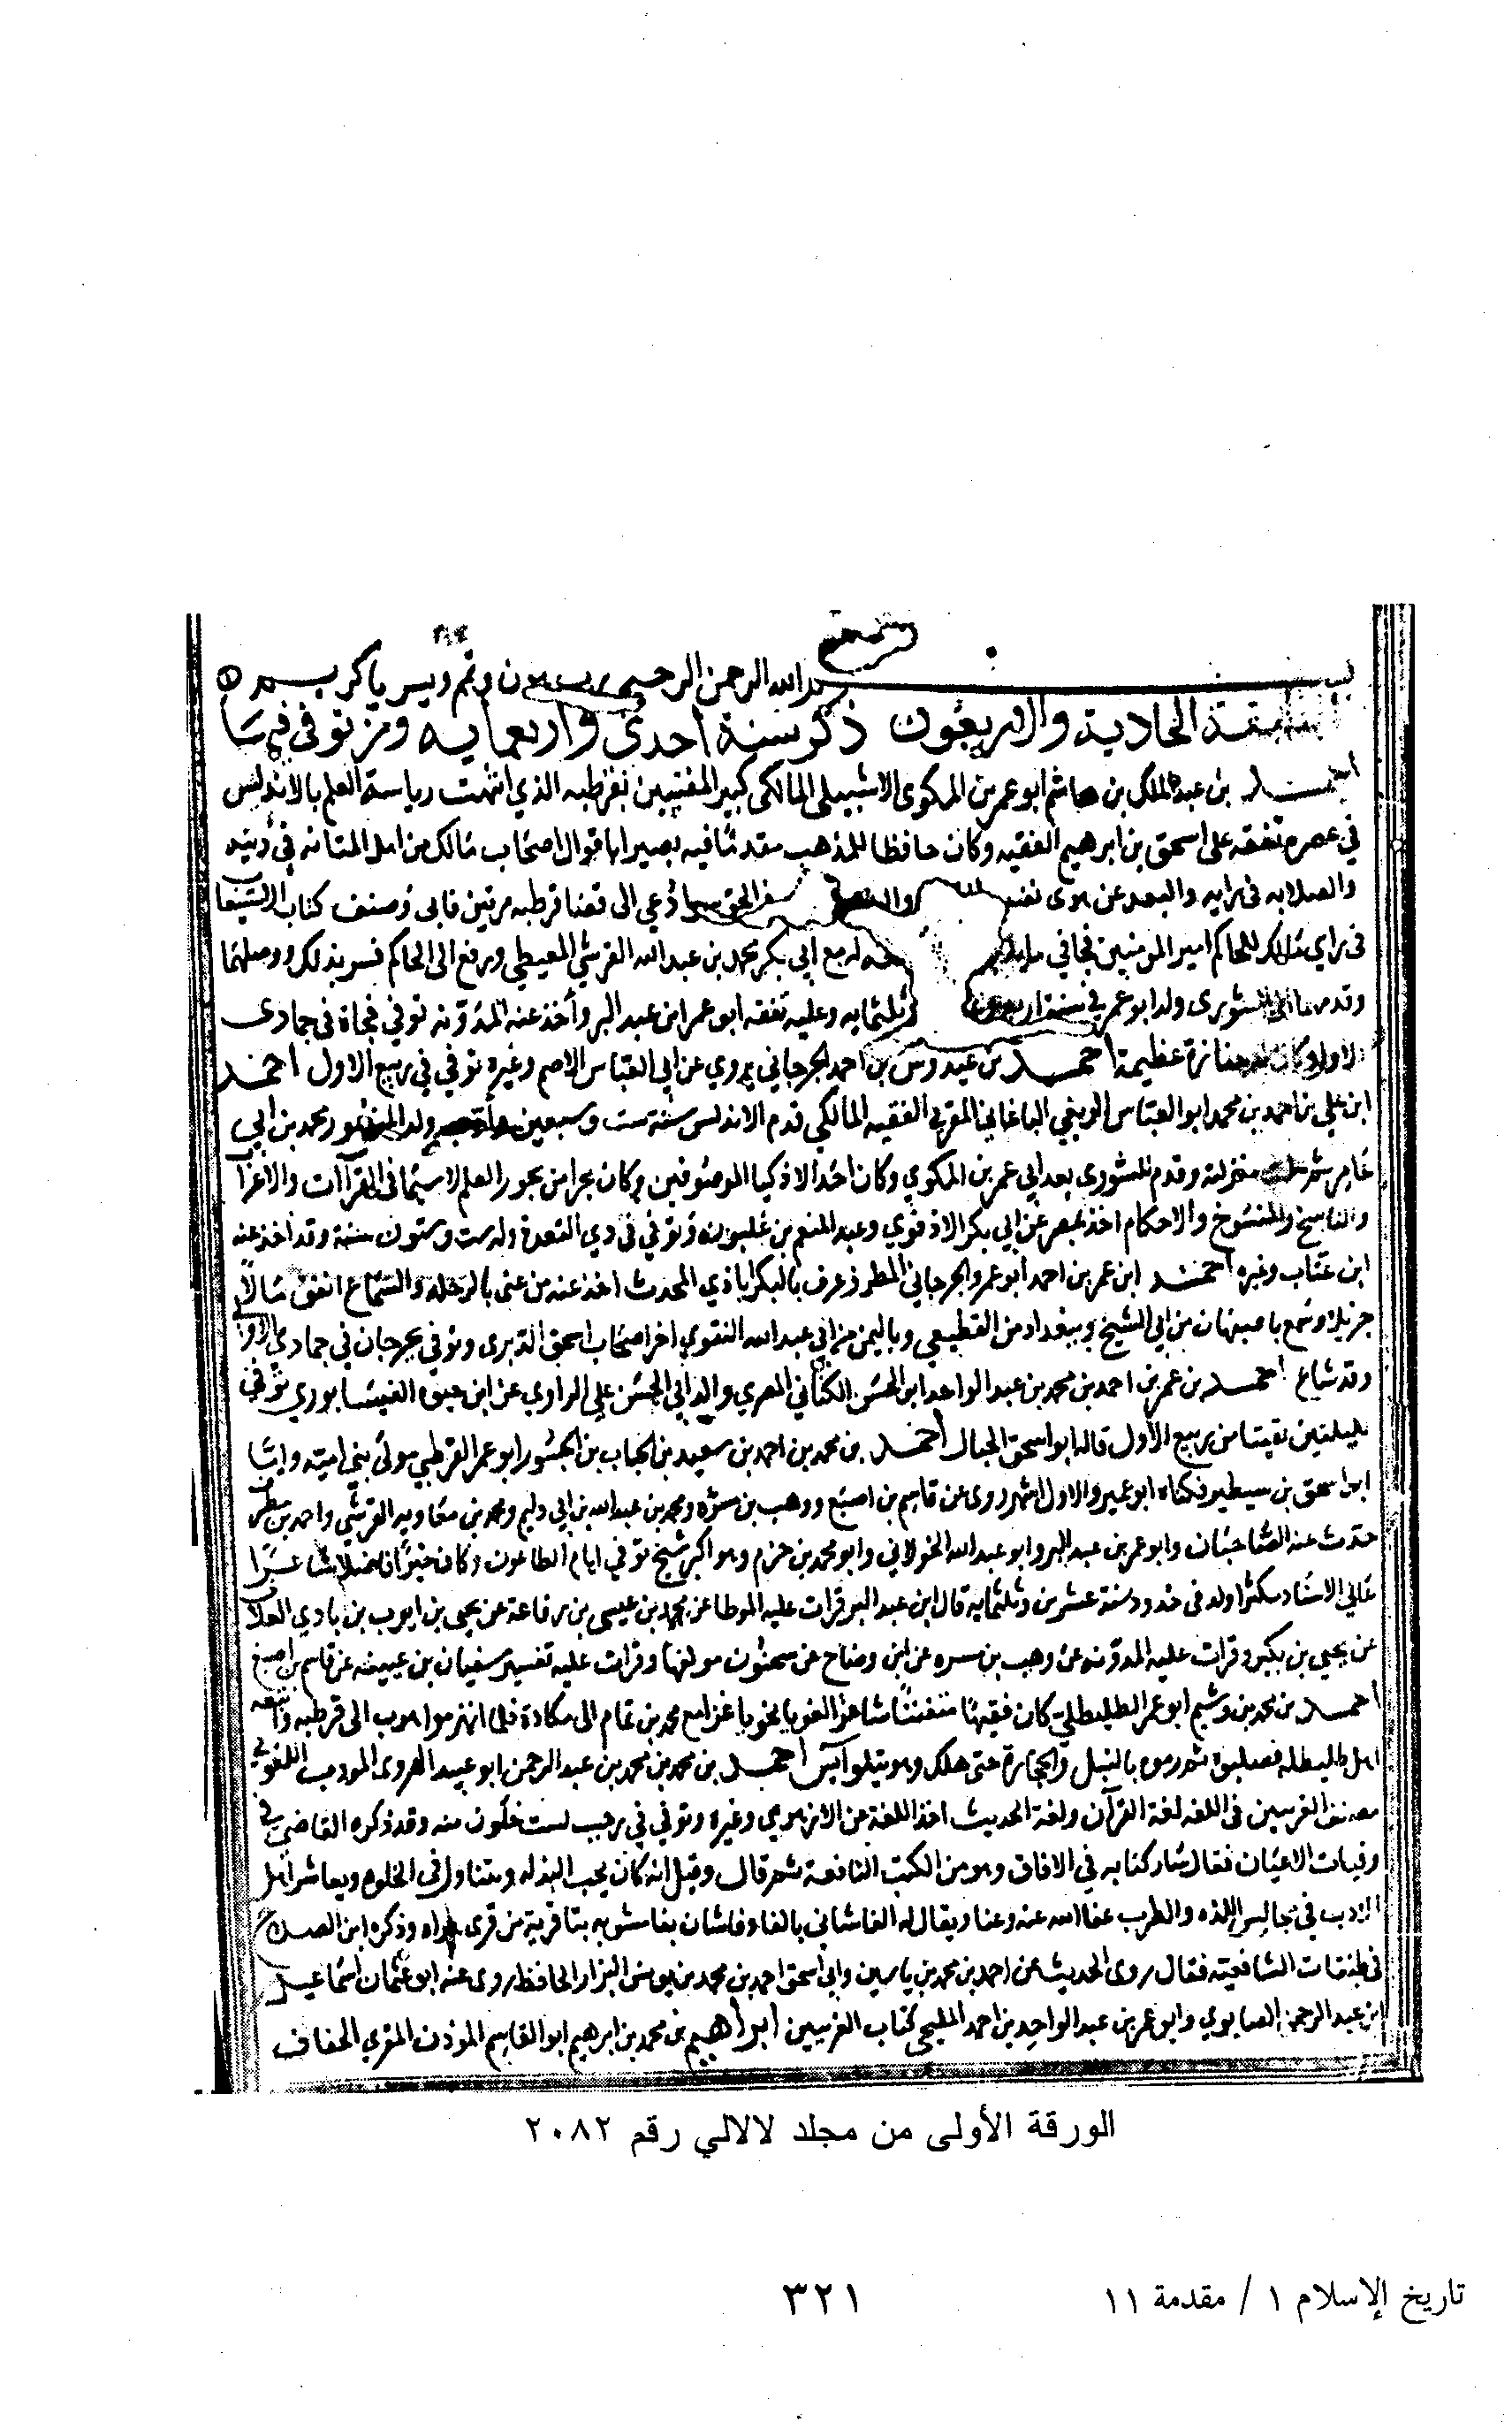 بسم الله الرحمن الرحيم رب وتمم ويسر يا كريم
الطبقة الحادية والاربعون ذكر سنة احدى واربعمايه ومن توفي فيها
احمد بن عبد الملك بن هاشم ابو عمر بن المكوى الاشبيلى المالكى كبير المفتيين بقرطبه الذي انتهت رياسة العلم بالاندلس
في عصره تفقه على اسحق بن ابرهيم الفقيه وكان حافظا للمذهب مقدما فيه بصيرا باقوال اصحاب مالك من اهل المتانه في دينه
والصلابه في رايه والبعد عن هوى نفسه دعي الى قضا قرطبه مرتين فابى وصنف كتاب الاستيعاب
في راي مالك للحاكم امير المومنين فجا في ماية له مع ابي بكر محمد بن عبد الله القرشي المعيطي ورفع الى الحاكم فسر بذلك ووصلهما
وقدمهما الى الشورى ولد ابو عمر في سنة اربع وعشرين وثلثمايه وعليه تفقه ابو عمر ابن عبد البر وأخذ عنه المدونه توفي فجاة في جمادى
الاولى وكان له جنازة عظيمة احمد بن عبدوس بن احمد الجرجاني يروي عن ابي العباس الاصم وغيره توفي في ربيع الاول احمد
ابن علي بن احمد بن محمد ابو العباس الربغي الباغاني المقري الفقيه المالكي قدم الاندلس سنة ست وسبعين ولد المنصور محمد بن ابي
عامر منزلته وقدم للشورى بعد ابي عمر بن المكوي وكان احد الاذكيا الموصوفين وكان بحرا من بحور العلم لاسيما في القراآت والاعراب
والناسخ والمنسوخ والاحكام اخذ بمصر عن ابي بكر الاذفوي وعبد المنعم بن غلبون وتوفي في ذي القعدة وله ست وستون سنة وقد اخذ عنه
ابن عتاب وغيره احمد ابن عمر بن احمد ابو عمرو الجرجاني المطرز عرف بالبكراباذي المحدث اخذ عنه من عني بالرحله والسماع انفق مالا
جزيلا وسمع باصبهان من ابي الشيخ وببغداد من القطيعي وباليمن من ابي عبد الله النقوي اخر اصحاب اسحق الدبري وتوفي بجرجان في جمادي الاولى
وقد شاع احمد بن عمر بن احمد بن محمد بن عبد الواحد ابو الحسن الكناني المصري والد ابي الحسن علي الراوي عن ابن حيويه النيسابوري توفي
لليلتين بقيتا من ربيع الأول قاله ابو اسحق الحبال احمد بن محمد بن احمد بن سعيد بن الحباب بن الجسور ابو عمر القرطبي مولى بني امية واما
ابو اسحق بن شنطير فكناه ابو عمير والاول اشهر روى عن قاسم بن اصبغ ووهب بن مسره ومحمد بن عبد الله بن ابي دليم ومحمد بن معاويه القرشي واحمد بن مطرف
حدث عنه الصاحبان وابو عمر بن عبد البر وابو عبد الله الخولاني وابو محمد بن حزم وهو اكبر شيخ توفي ايام الطاعون وكان خيرا فاضلا شاعرا
عالي الاسناد مكثرا ولد في حدود سنة عشرين وثلثمايه قال ابن عبد البر قرات عليه الموطا عن محمد بن عيسى بن رفاعة عن يحيى بن ايوب بن بادي العلاف
عن يحيى بن بكير وقرات عليه المدونه عن وهب بن مسره عن ابن وضاح عن سحنون مولفها وقرات عليه تفسير سفيان بن عيينه عن قاسم بن اصبغ
احمد بن محمد بن وشيم ابو عمر الطليطلي كان فقيها متفننا شاعرا لغويا نحويا غزا مع محمد بن تمام الى مكادة فلما انهزموا هرب الى قرطبه واتبعه
اهل طليطله فصلبوه ثم رموه بالنبل والحجارة حتى هلك وهو يتلو آيس احمد بن محمد بن محمد بن عبد الرحمن ابو عبيد الهروى المودب اللغوي
مصنف الغريبين في اللغه لغة القرآن ولغة الحديث اخذ اللغة عن الازهري وغيره وتوفي في رجب لست خلون منه وقد ذكره القاضي في
وفيات الاعيان فقال سار كتابه في الافاق وهو من الكتب النافعة ثم قال وقيل انه كان يحب البذله ويتناول في الخلوه ويعاشر اهل
الادب في مجالس اللذه والطرب عفا الله عنه وعنا ويقال له الفاشاني بالفا وفاشان بفا مشوبه ببا قرية من قرى هراه وذكره ابن الصلاح
في طبقات الشافعية فقال روى الحديث عن احمد بن محمد بن ياسين وابي اسحق احمد بن محمد بن يونس البزار الحافظ روى عنه ابو عثمان اسماعيل
ابن عبد الرحمن الصابوني وابو عمر بن عبد الواحد بن احمد المليحي كتاب الغريبين ابراهيم بن محمد بن ابرهيم ابو القاسم الموذن المقري الخفاف
الورقة الأولى من مجلد لالالي رقم ٢٠٨٢
تاريخ الإسلام ١ / مقدمة ١١
٣٢١